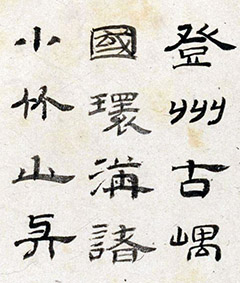 登州古嵎
國環溝諸
小竹山